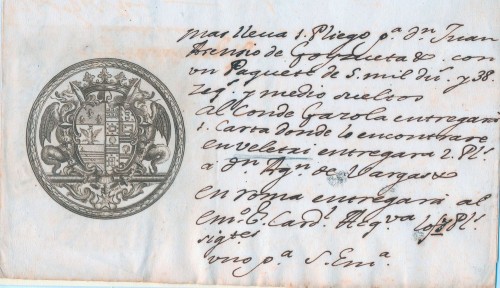 mas lleva 1. Pliego p.ª d.n Juan
Asensio de Goyzueta &. con
un Paquete de 5. mil di. y 38.
zeq.s y medio sueltos
al Conde Gazola entregara
1. Carta donde lo encontrare
en veletri entregara 2. Pl.s
a d.n Ag.n de Vargas &
en roma entregara al
em.º S.r Card.l Aq.va los 3 Pl.s
sig.tes
uno p.ª S. Em.ª